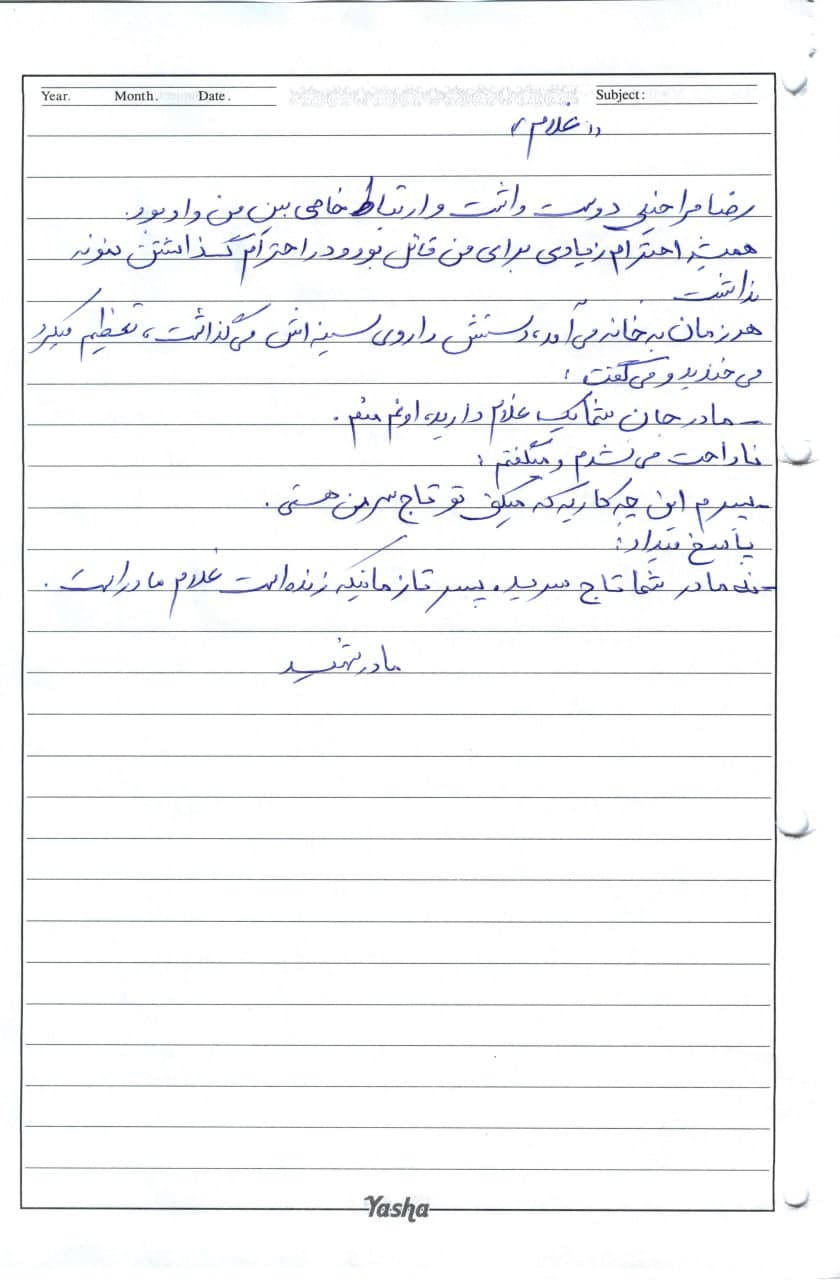 Year. Month. Date. Subject:
«غلام»
رضا مرا خیلی دوست داشت و ارتباط خاصی بین من و او بود.
همیشه احترام زیادی برای من قائل بود و در احترام گذاشتن نمونه
نداشت
هر زمان به خانه می‌آمد، دستش را روی سینه‌اش می‌گذاشت، تعظیم میکرد
می‌خندید و می‌گفت:
ـ مادر جان شما یک غلام دارید، اونم منم.
ناراحت می‌شدم و میگفتم:
ـ پسرم این چه کاریه که میکنی تو تاج سر من هستی.
پاسخ میداد:
ـ نه مادر شما تاج سرید. پسر تا زمانیکه زنده است غلام مادر است.
مادر شهید
Yasha